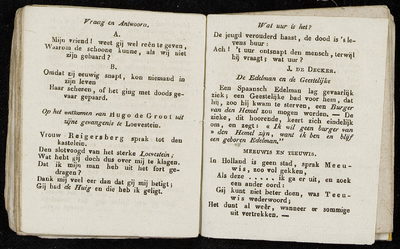 Vraag en Antwoord.
A.
Mijn vriend! weet gij wel reên te geven,
Waarom de schoone kunne, als wij niet
zijn gebaard?
B.
Omdat zij eeuwig snapt, kon niemand in
zijn leven
Haar scheren, of het ging met doodsge-
vaar gepaard.
Op het ontkomen van Hugo de Groot uit
zijne gevangenis te Loevestein.
Vrouw Reigersberg sprak tot den
kastelein.
Den slotvoogd van het sterke Loevestein:
Wat hebt gij doch dus over mij te klagen.
Dat ik mijn man heb uit het fort ge-
dragen?
Dank mij veel eer dan dat gij mij betigt;
Gij had de Huig en die heb ik geligt.
Wat uur is het?
De jeugd verouderd haast, de dood is 's le-
vens buur:
Ach! 't uur ontsnapt den mensch, terwijl
hij vraagt: wat uur?
J. DE DECKER.
De Edelman en de Geestelijke
Een Spaansch Edelman lag gevaarlijk
ziek; een Geestelijke bad voor hem, dat
hij, zoo hij kwam te sterven, een Burger
van den Hemel zou mogen worden. — De
zieke, dit hoorende, keert zich eindelijk
om, en zegt: « Ik wil geen burger van
» den Hemel zijn, want ik ben en blijf
een geboren Edelman."
MEEUWIS EN TEEUWIS.
In Holland is geen stad, sprak Meeu-
wis, zoo vol gekken,
Als deze ..... ik ga er uit, en zoek
een ander oord:
Gij kunt niet beter doen, was Teeu-
wis wederwoord;
Het dunt al weêr, wanneer er sommige
uit vertrekken. —